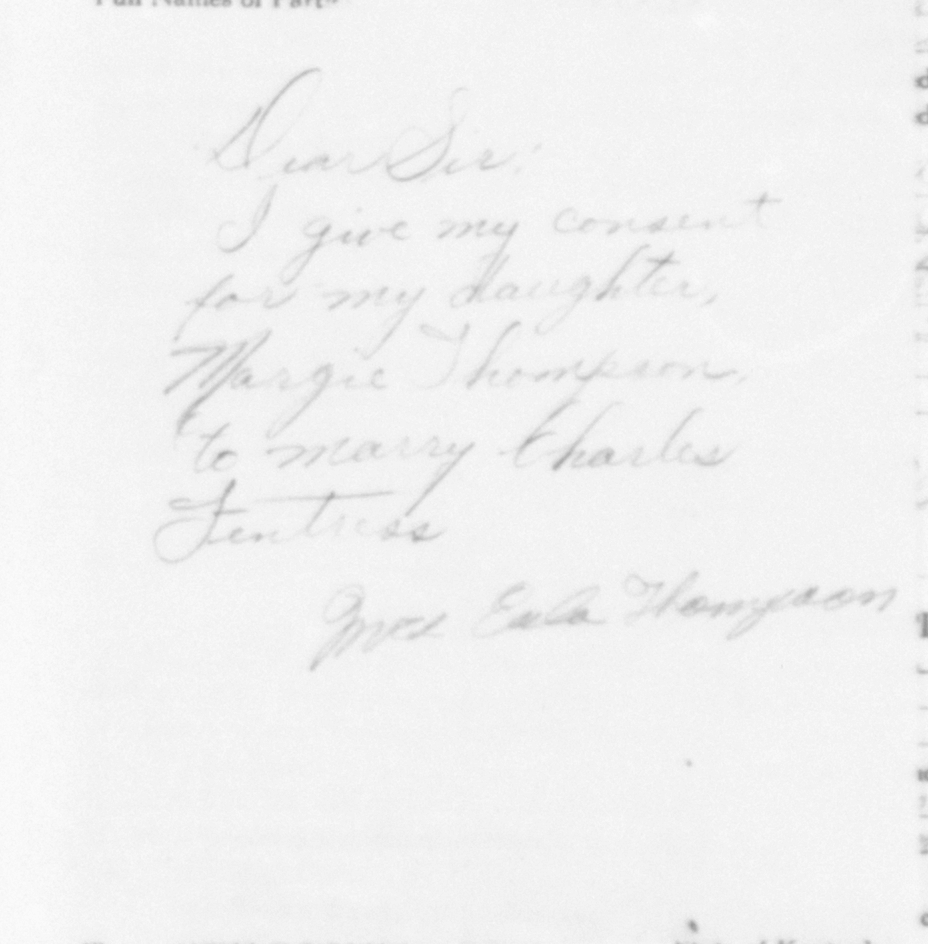 Full Names of
Dear Sir:
I give my consent
for my daughter,
Margie Thompson,
to marry Charles
Fentress
Mrs Eula Thompson